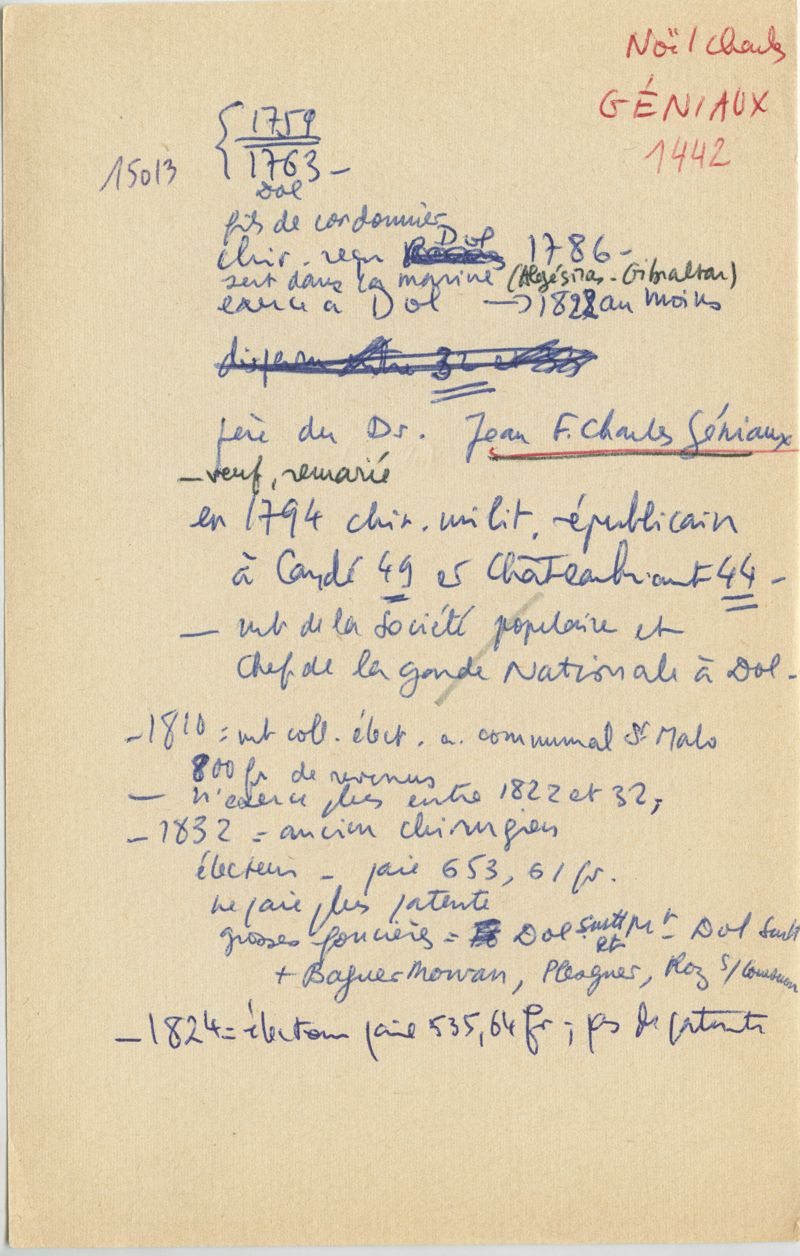 Noël Charles
GÉNIAUX
1442
1759
15013
1763 -
Dol
fils de cordonnier
chir. reçu Dol 1786 -
sert dans la marine (Algésiras - Gibraltar)
exerce à Dol → 1822 au moins
disparu entre 32 et
père du Dr. Jean F. Charles Géniaux
- veuf, remarié
en 1794 chir. milit. républicain
à Candé 49 et Châteaubriant 44 -
- mb de la Société populaire et
Chef de la garde Nationale à Dol -
- 1810 = mb coll. élect. a. communal St Malo
800 fr de revenus
- n'exerce plus entre 1822 et 32,
- 1832 = ancien chirurgien
électeur - paie 653,61 fr.
ne paie plus patente
grosses foncières = Dol surtt et - Dol surtt
+ Baguer Morvan, Pleaguer, Roz s/ Couesnon
- 1824 = électeur paie 535,64 fr ; pas de patente